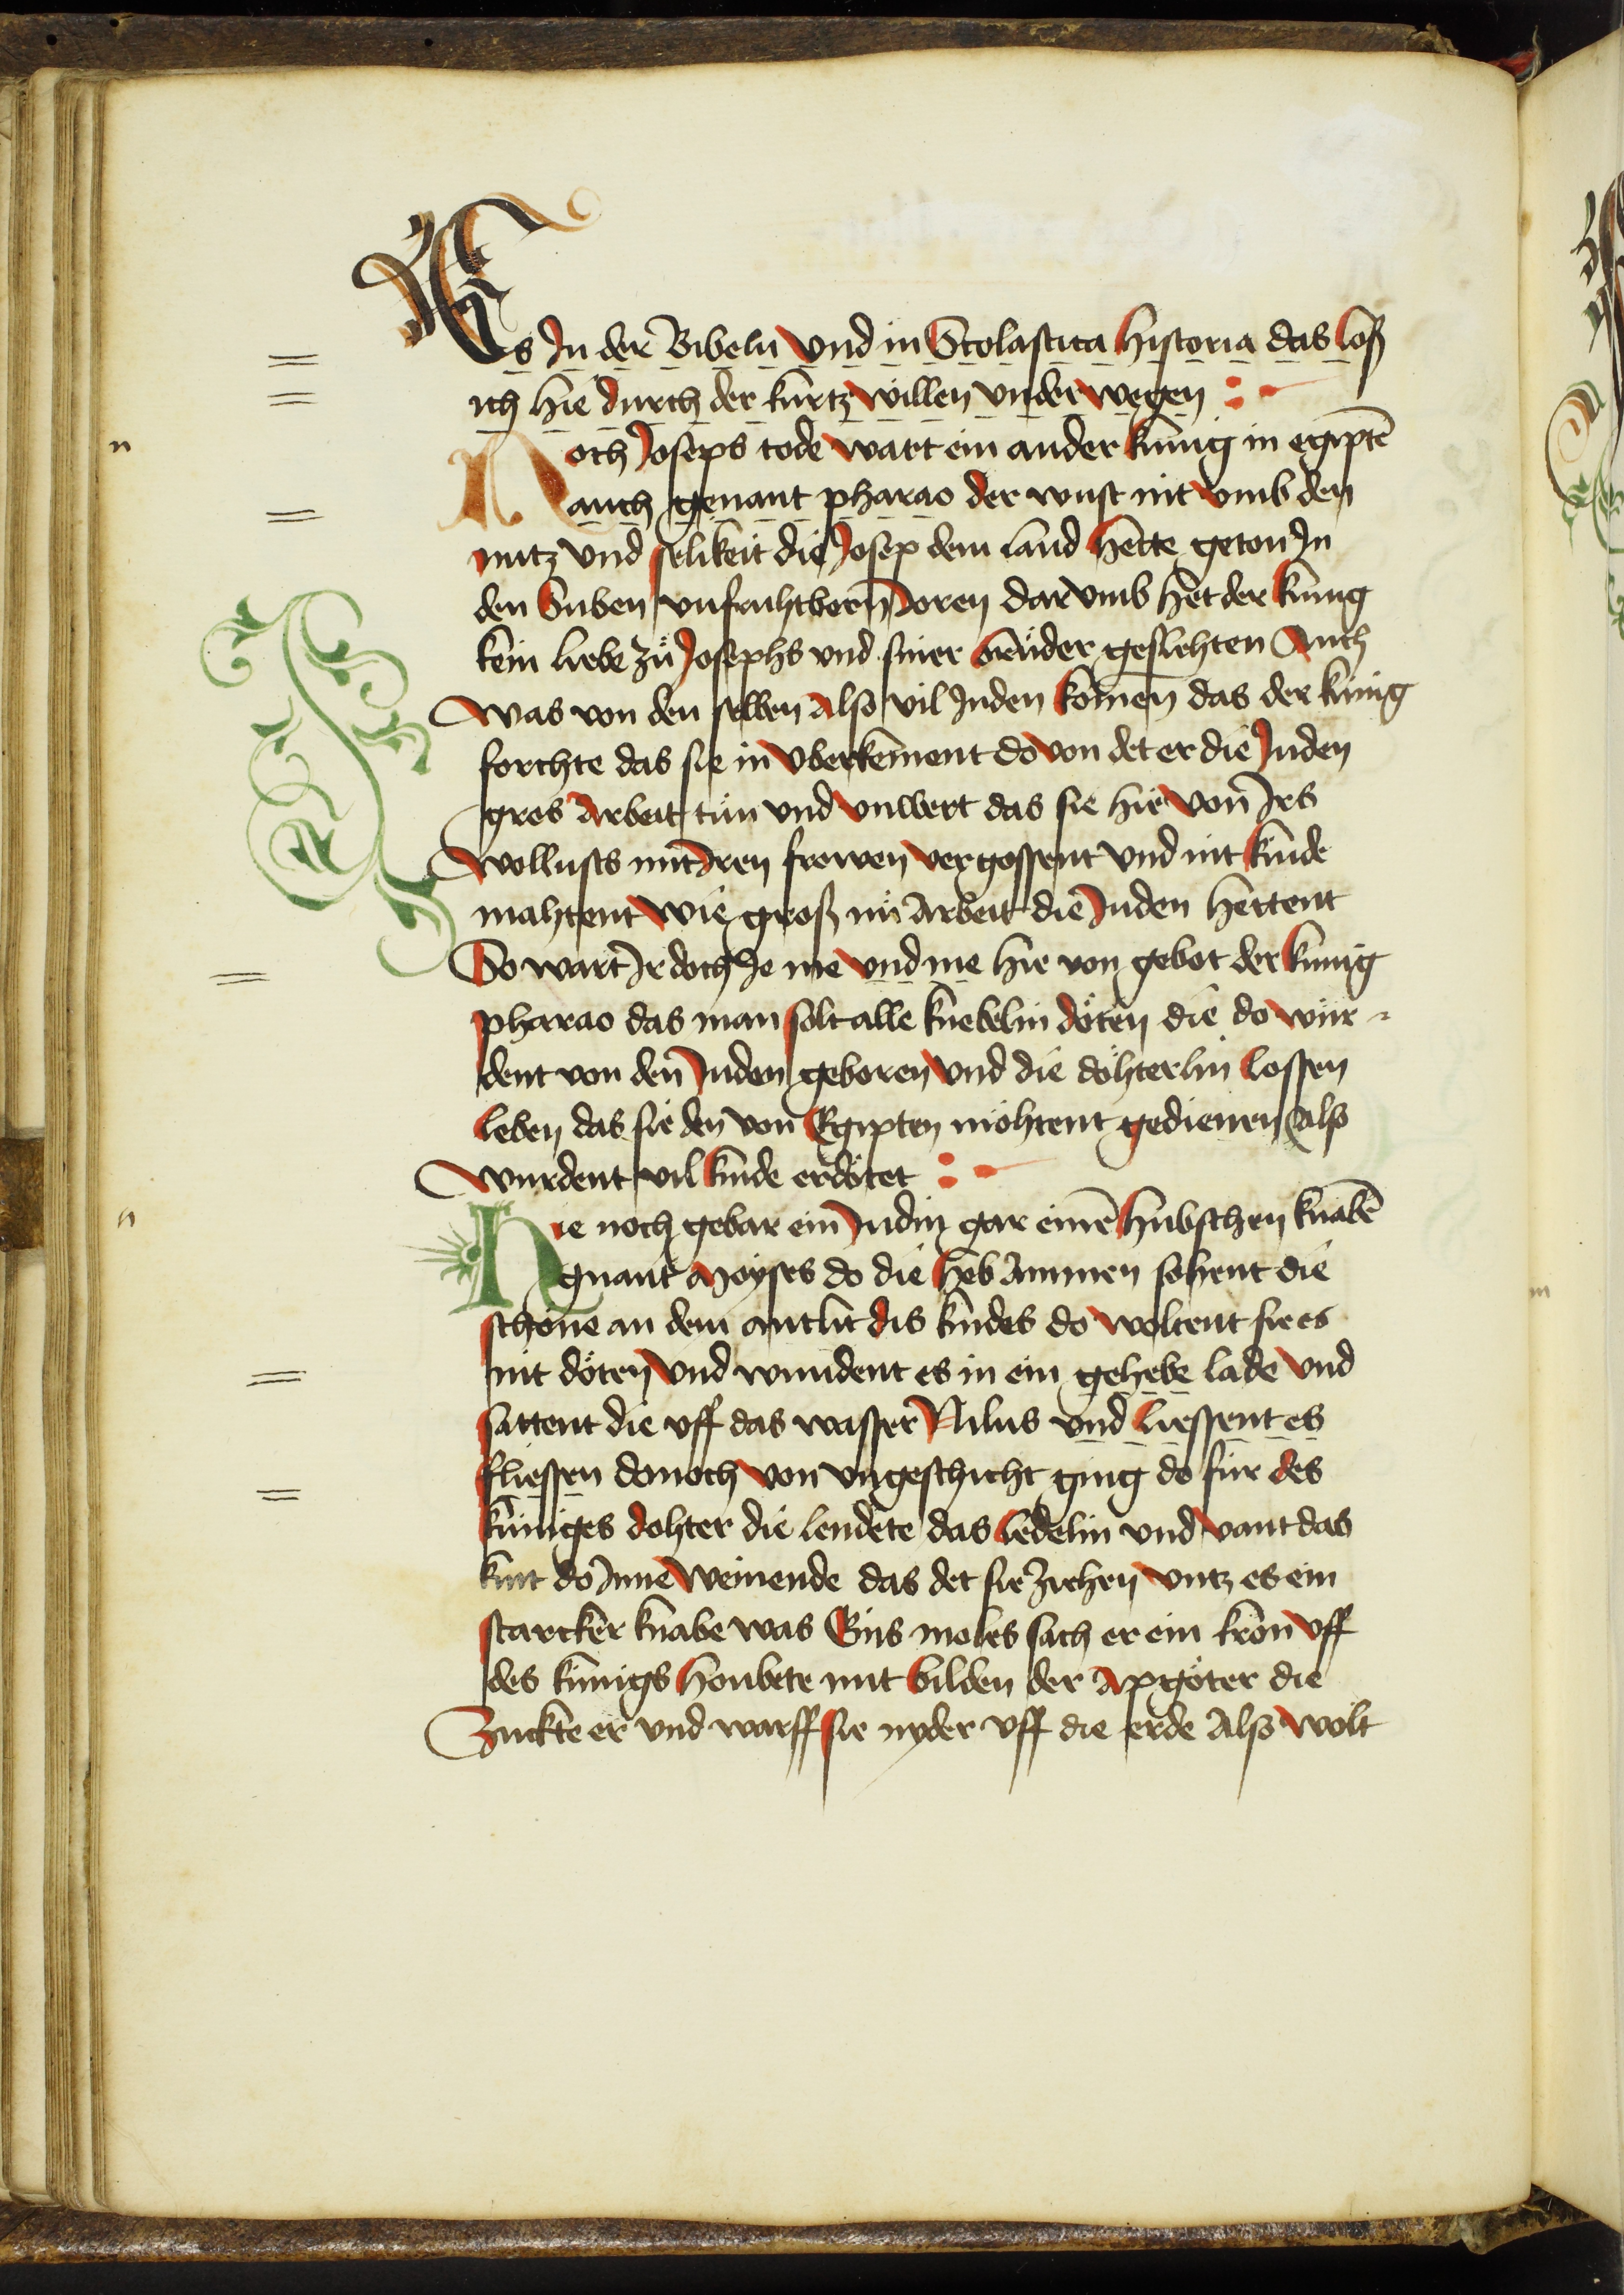 Es In der Bibeln vnd in Scolastica historia das loß
ich hie durch der kurtz willen vnder wegen :-
Noch Joseps tode wart ein ander kunig in egiptē
auch genant pharao der wust nit vmb den
nutz vnd selikeit die Josep dem land hette geton In
den Suben vnfruhtbern Joren dar vmb het der kunig
kein liebe zů Josephs vnd siner brůder geslehten Auch
was von den selben also vil Juden komen das der kunig
forchte das sie in vberkement do von det er die Juden
gros Arbeit tůn vnd vnwert das sie hie von Irs
wollusts mit Iren frowen vergossent vnd nit kinde
mahtent wie groß nů Arbeit die Juden hettent
So wart Ir doch Je me vnd me hie von gebot der kunig
pharao das man solt alle knebelin döten die do wur-
dent von den Juden geboren vnd die döhterlin lossen
leben das sie den von Egipten möhtent gedienen Also
wurdent vil kinde erdötet :-
Hie noch gebar ein Judin gar einē hubschen knabē
gnant Moyses do die heb Ammen sohent die
schöne an dem antlit dis kindes do woltent sie es
nit döten vnd wundent es in ein gehebe lade vnd
sattent die vff das wasser Nilus vnd liessent es
fliessen donoch von vngeschicht ging do für des
kuniges dohter die lendete das ledelin vnd vant das
kint do Inne weinende das det sie ziehen vntz es ein
starcker knabe was Eins moles sach er ein kron vff
des kunigs houbete mit bilden der Apgöter die
Zuckte er vnd warff sie nyder vff die erde Also wolt